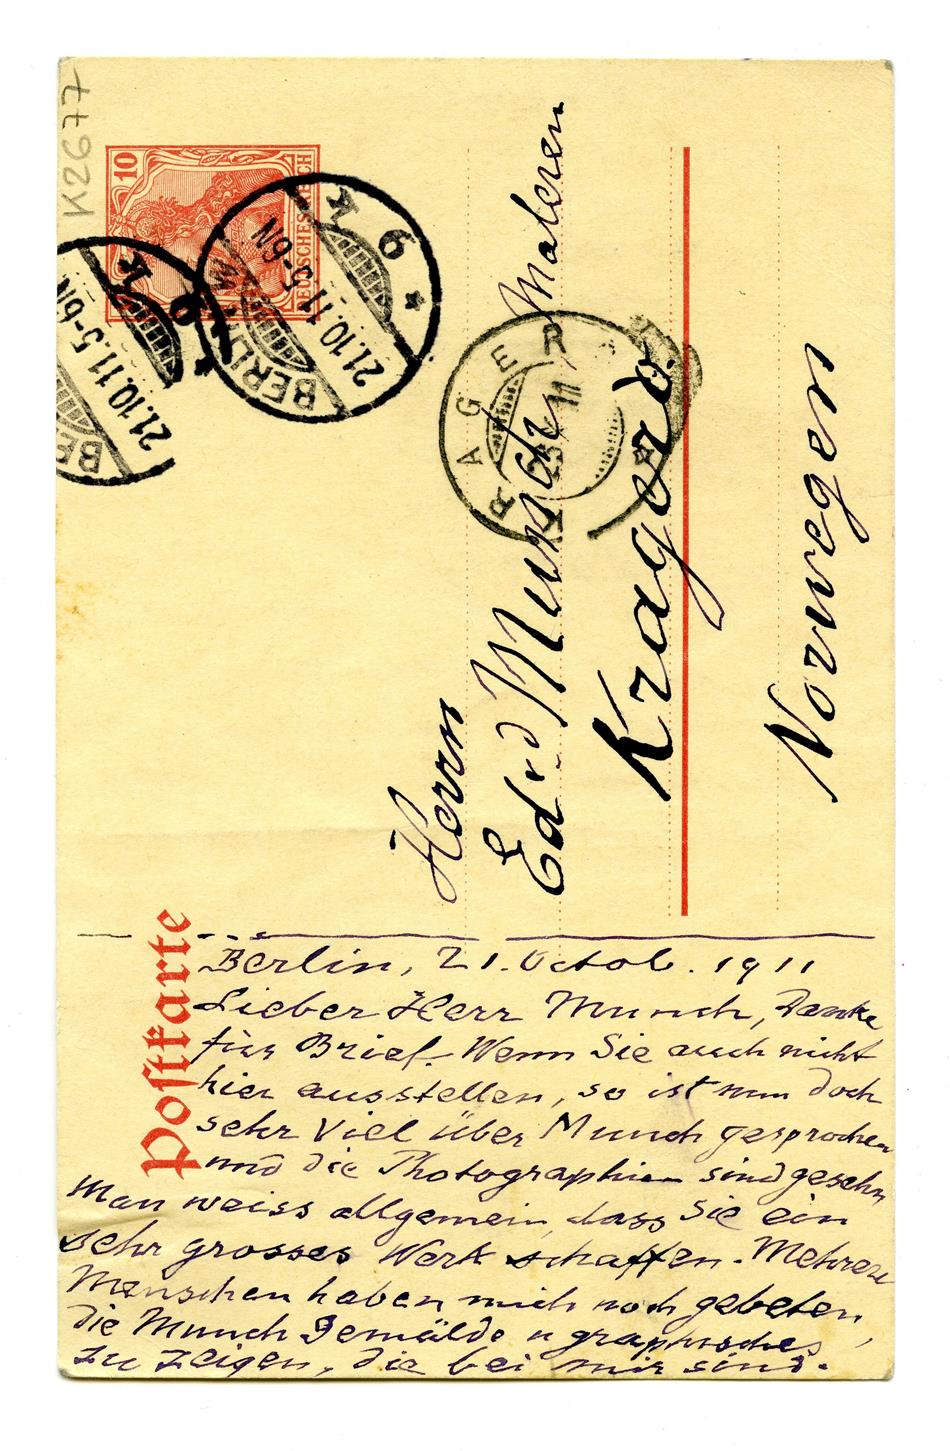 K2677
10
DEUTSCHES REICH
BERLIN W
21.10.11.5-6N
* k 6 *
BE
21.10.11.5-6N
k 6 *
KRAGERØ
23 X 11
Postkarte
Herrn
Edvd Munch, Maleren
Kragerö
Norwegen
Berlin, 21. Octob. 1911
Lieber Herr Munch, Danke
für Brief. Wenn Sie auch nicht
hier ausstellen, so ist nun doch
sehr viel über Munch gesprochen
und die Photographien sind gesehn
Man weiss allgemein, dass Sie ein
sehr grosses Werk schaffen. Mehrere
Menschen haben mich noch gebeten,
die Munch Gemälde u graphisches,
zu zeigen, die bei mir sind.